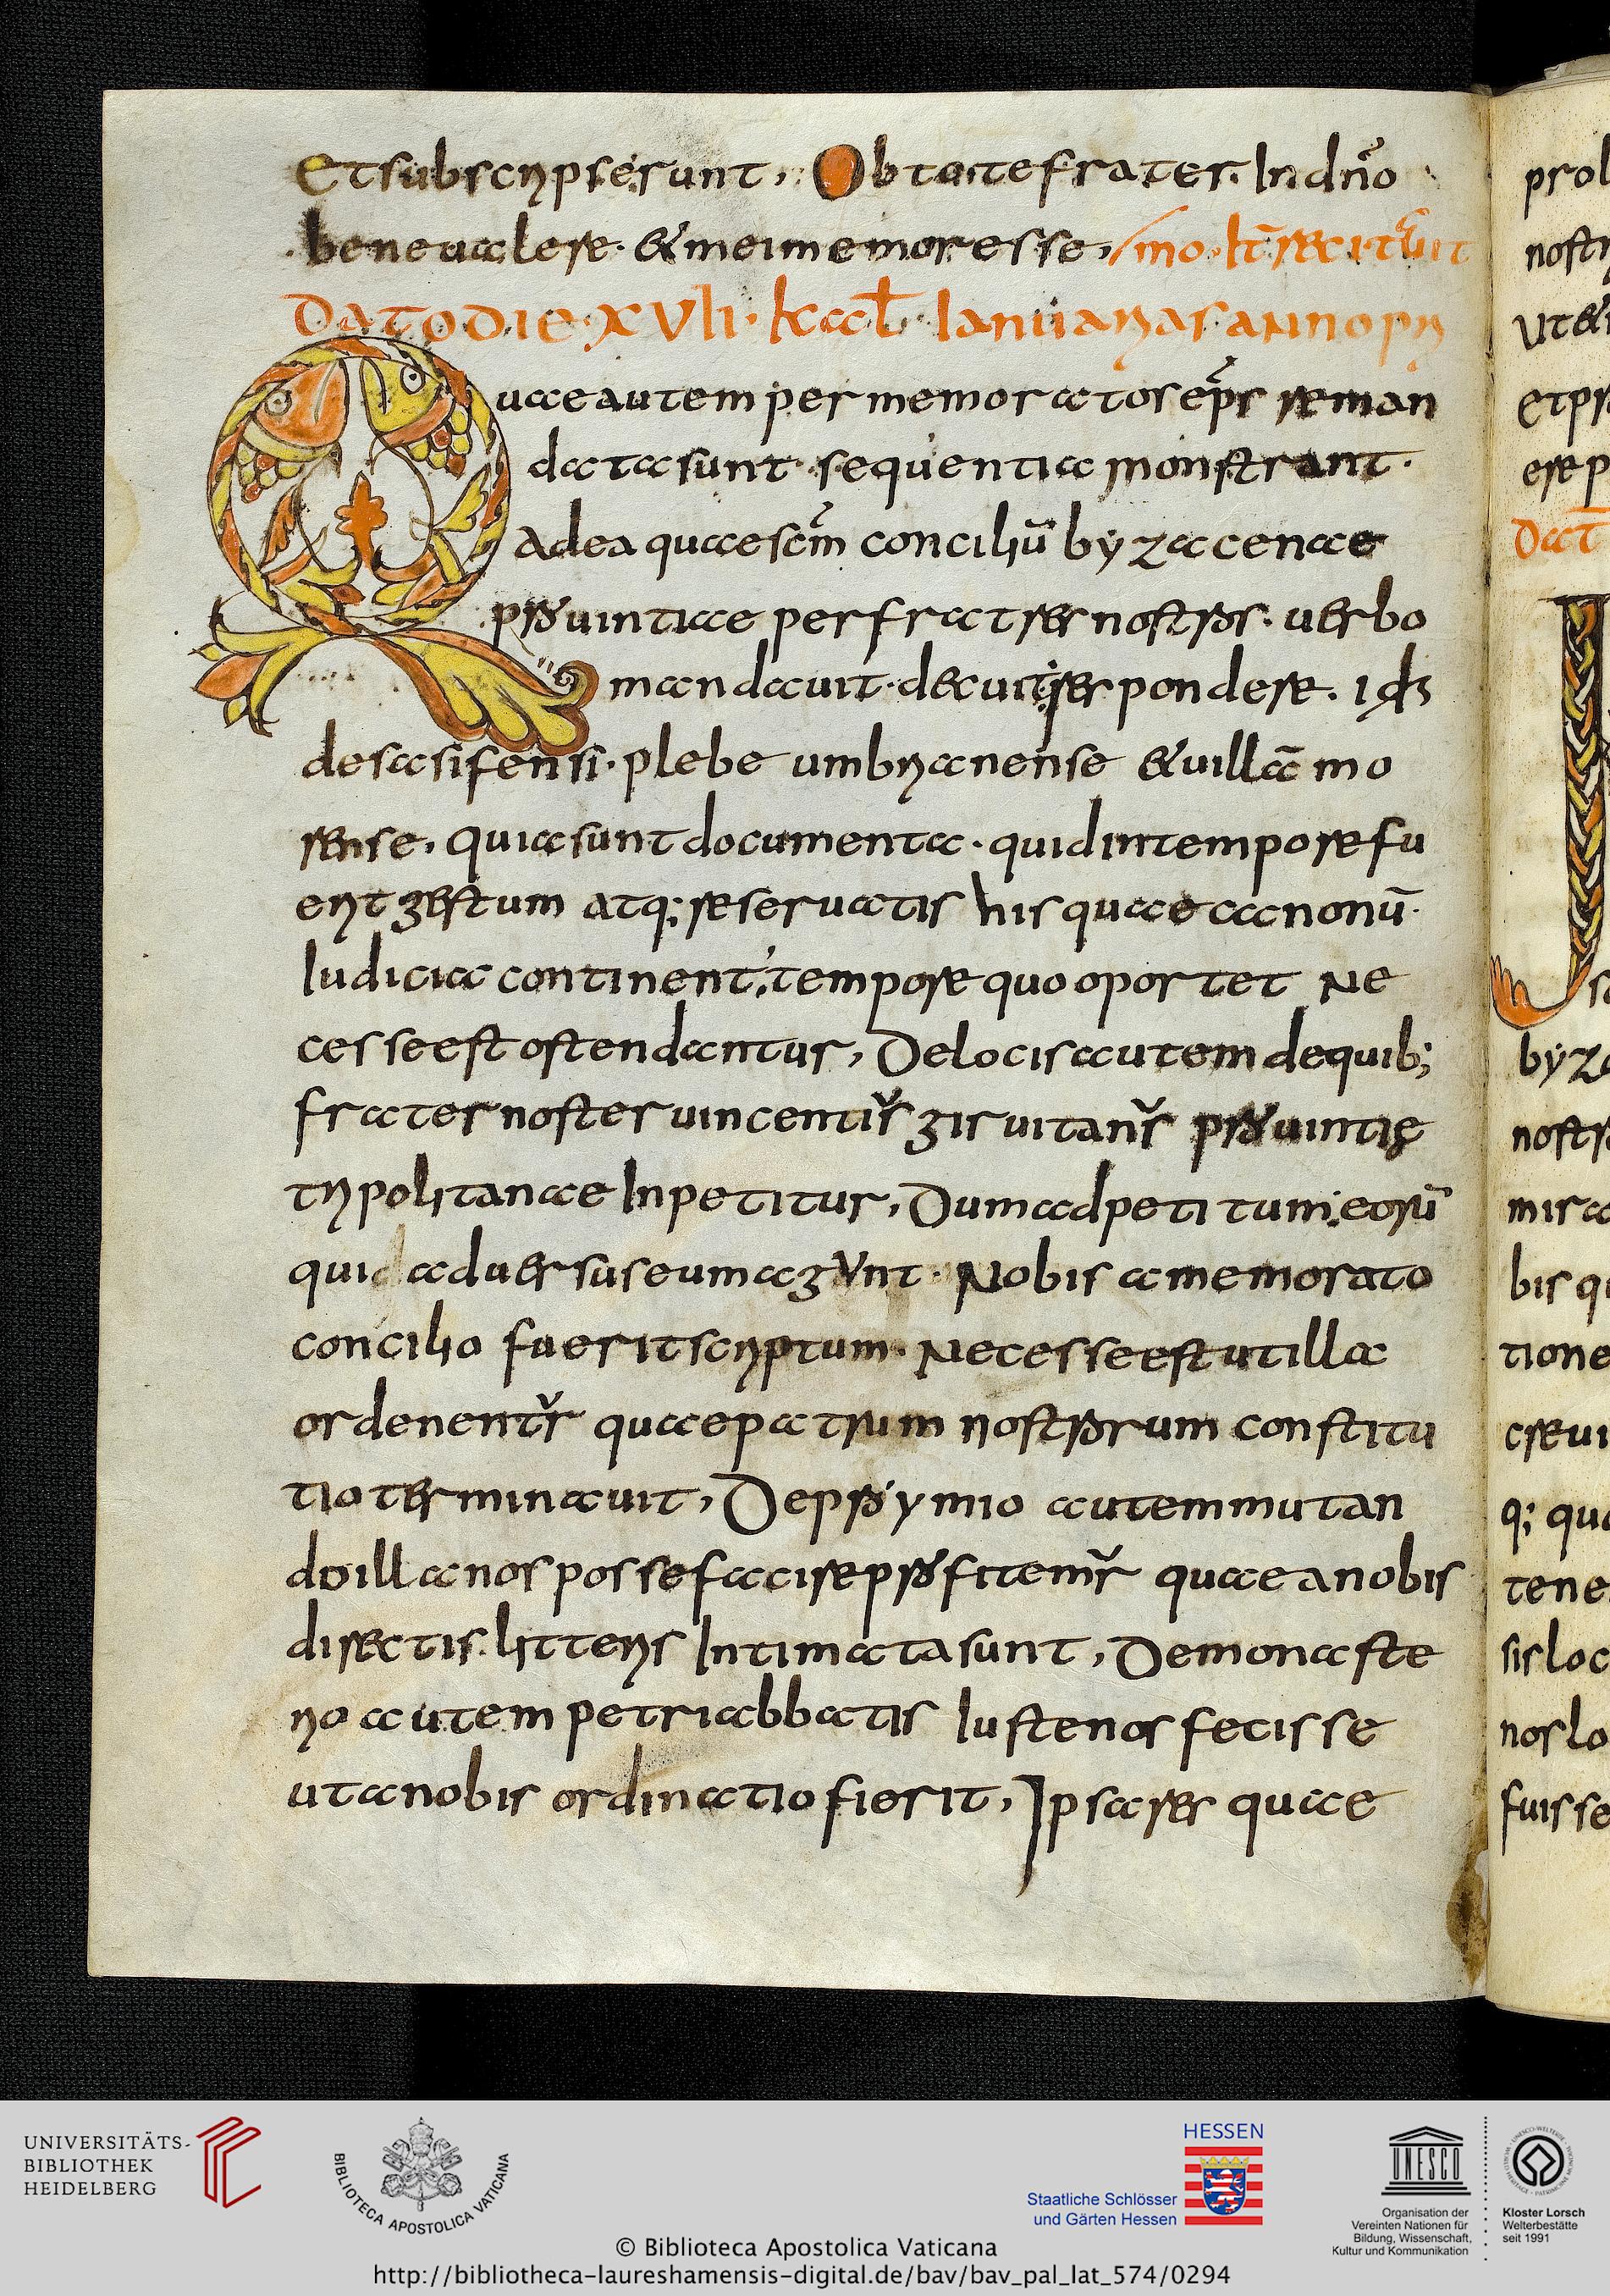 Et subscripserunt, Obto te frater In dño
bene ualere. & mei memor esse,
Dato die XVII. kal Ianuarias anno pri
Quae autem per memoratos eps reman
data sunt sequentia monstrant.
Ad ea quae scm conciliū byzacenae
prouintiae per fratres nostros. uerbo
mandauit. decuit respondere.
de sasifensi. plebe umbrianense & uillā mo
rense. quia sunt documenta. quid in tempore fu
erit gestum atq; reseruatis his quae canonū.
Iudicia continent, tempore quo oportet Ne
cesse est ostendantur, De locis autem de quib;
frater noster uincentius giruitanus prouintię
tripolitanae In petitur, Dum ad petitum eorū
qui aduersus eum agunt. Nobis a memorato
concilio fuerit scriptum. Necesse est ut illa
ordenentur quae patrum nostrorum constitu
tio terminauit, De proymio autem mutan
do illa nos posse facire profitemur quae a nobis
directis litteris Intimata sunt, De monaste
rio autem petri abbatis Iuste nos fecisse
ut a nobis ordinatio fierit, Ipsa res quae
prol
nostri
Etpr
byza
bis qu
tione
q; qua
tene
sis loc
nos lo
fuisse
UNIVERSITÄTS-
BIBLIOTHEK
HEIDELBERG
BIBLIOTECA APOSTOLICA VATICANA
HESSEN
Staatliche Schlösser
und Gärten Hessen
UNESCO
Organisation der
Vereinten Nationen für
Bildung, Wissenschaft,
Kultur und Kommunikation
Kloster Lorsch
Welterbestätte
seit 1991
© Biblioteca Apostolica Vaticana
http://bibliotheca-laureshamensis-digital.de/bav/bav_pal_lat_574/0294